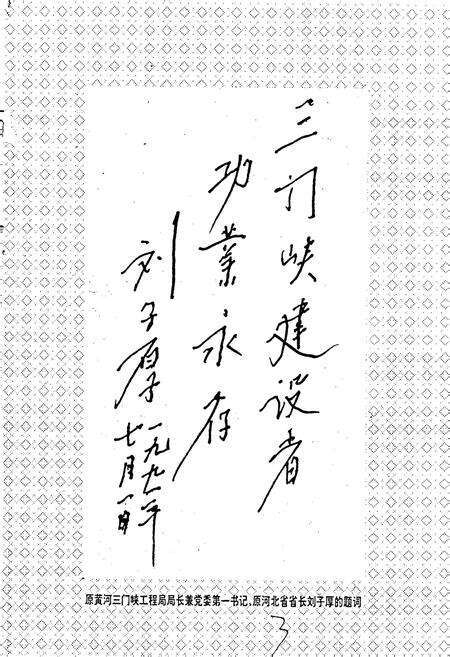 三门峡建设者
功業永存
刘子厚
一九九一年
七月一日
原黄河三门峡工程局局长兼党委第一书记、原河北省省长刘子厚的题词
3